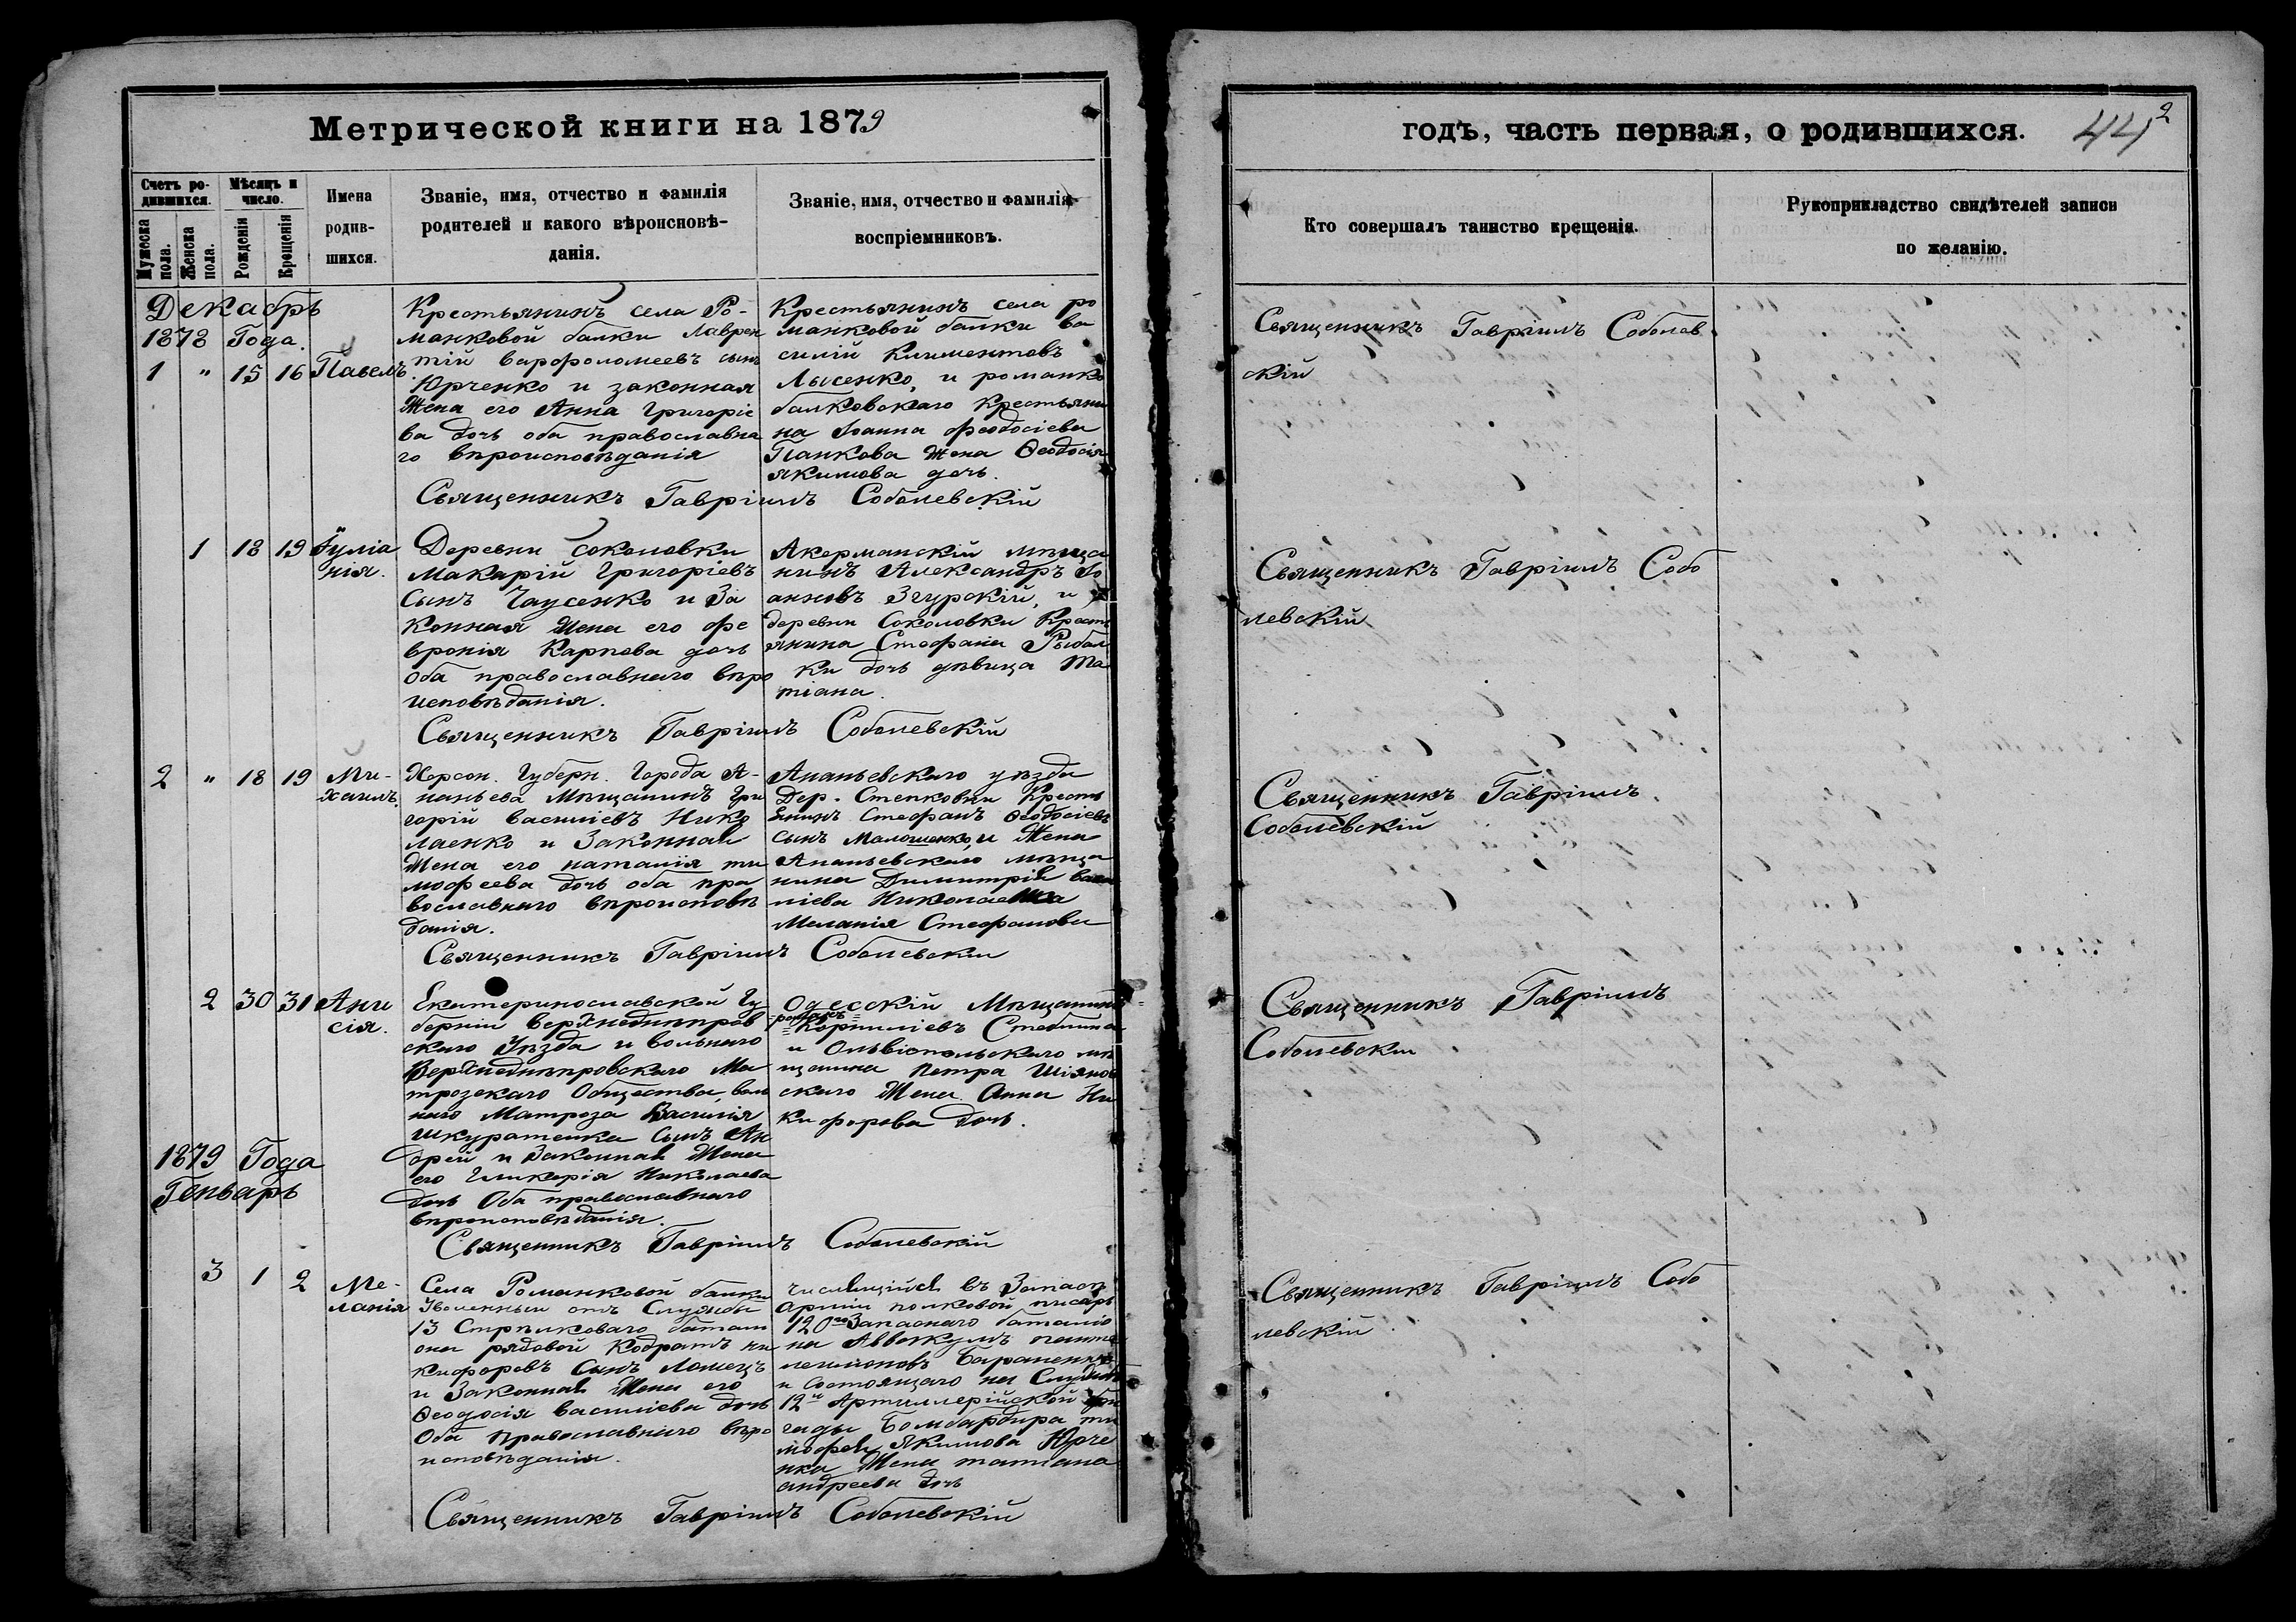 Метрической книги на 1879
годъ, часть первая, о родившихся. 44 2
Счетъ ро-
дившихся.
Мужеска
пола.
Женска
пола.
Мѣсяцъ и
число.
Рожденія
Крещенія
Имена
родив-
шихся.
Званіе, имя, отчество и фамилія
родителей и какого вѣроисновѣ-
данія.
Званіе, имя, отчество и фамилія
воспріемниковъ.
Кто совершалъ таинство крещенія.
Рукоприкладство свидѣтелей записи
по желанію.
Декабрь
1878 Года.
1 " 15 16 Павелъ
Крестьянинъ села Ро-
манковой балки Лаврен
тій варфоломеевъ сынъ
Юрченко и законная
Жена его Анна Григоріе
ва дочь оба православна
го вѣроисповѣданія
Крестьянинъ села ро
манковой балки ва
силій Климентовъ
Лысенко, и романко
балковскаго Крестьяни
на Іоанна феодосіева
Панкова Жена Ѳеодосія
якимова дочь.
Священникъ Гавріилъ Соболевскій
Священникъ Гавріилъ Соболев
скій
1 18 19 Іуліа
нія.
Деревни соколовки
Макарій Григоріевъ
Сынъ Чаусенко и За
конная Жена его фе
вронія Карпова дочь
Оба православнаго вѣро
исповѣданія.
Акерманскій мѣща
нинъ Александръ Іо
анновъ Згурскій, и
деревни Соколовки Крест
янина Стефана Рыбал
ки дочь дѣвица та
тіана.
Священникъ Гавріилъ Соболевскій
Священникъ Гавріилъ Собо
левскій
2 " 18 19 Ми-
хаилъ.
Херсон. Губерн. Города А-
наньева Мѣщанинъ Гри
горій василіевъ Нико
лаенко и Законная
Жена его наталія ти
мофеева дочь оба пра
вославнаго вѣроисповѣ
данія.
Ананьевскаго уѣзда
Дер. Степковки Кресть
янинъ Стефанъ Ѳеодосіевъ
сынъ Малошенко, и Жена
Ананьевскаго мѣща
нина Димитрія васи
ліева Николаенка
Меланія Стефанова
Священникъ Гавріилъ Соболевскій
Священникъ Гавріилъ
Соболевскій
2 30 31 Ани
сія.
Екатеринославской Гу
берніи Верхнеднѣпров
скаго Уѣзда и вольнаго
Верхнеднѣпровскаго Ма
трозскаго Общества, воль
наго Матроза Василія
шкуратенка Сынъ Ан
дрей и Законная Жена
его Гликерія Николаева
дочь Оба православнаго
вѣроисповѣданія.
Одесскій Мѣщанинъ
Корниліевъ Стеблина
и Ольвіопольскаго мѣ
щанина Петра Шіянов
скаго Жена Анна Ни
кифорова дочь.
Священникъ Гавріилъ Соболевскій
Священникъ Гавріилъ
Соболевскій
1879 Года
Генварь
3 1 2 Ме-
ланія
Села Романковой балки
Уволенный отъ Службы
13 Стрѣлковаго баталі
она рядовой Кодратъ ни
кифоровъ Сынъ
и Законная Жена его
Ѳеодосія василіева дочь
Оба Православнаго вѣро
исповѣданія.
числящійся въ Запасѣ
арміи полковой писарь
120го Запаснаго баталіо
на Аввакумъ панте
лемоновъ Бараненко
и Состоящаго на Службѣ
12й Артиллерійской бри
гады Бомбардира ти
мофея Якимова Юрче
нка Жена татіана
андреева дочь
Священникъ Гавріилъ Соболевскій
Священникъ Гавріилъ Собо
левскій